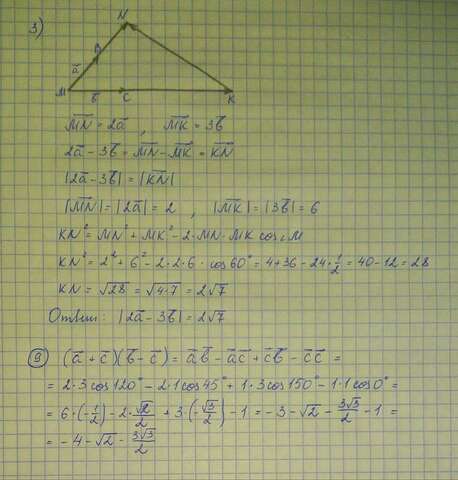 3)
N
B
a⃗
M
b⃗
C
K
M⃗N = 2a⃗ , M⃗K = 3b⃗
2a⃗ - 3b⃗ = M⃗N - M⃗K = K⃗N
|2a⃗ - 3b⃗| = |K⃗N|
|M⃗N| = |2a⃗| = 2 , |M⃗K| = |3b⃗| = 6
KN² = MN² + MK² - 2·MN·MK cos∠M
KN² = 2² + 6² - 2·2·6 · cos60° = 4+36-24·1/2 = 40-12 = 28
KN = √28 = √4·7 = 2√7
Ответ: |2a⃗ - 3b⃗| = 2√7
9) (a⃗ + c⃗)(b⃗ - c⃗) = a⃗b⃗ - a⃗c⃗ + c⃗b⃗ - c⃗c⃗ =
= 2·3cos120° - 2·1cos45° + 1·3cos150° - 1·1cos0° =
= 6·(-1/2) - 2·√2/2 + 3·(-√3/2) - 1 = -3 - √2 - 3√3/2 - 1 =
= -4 - √2 - 3√3/2